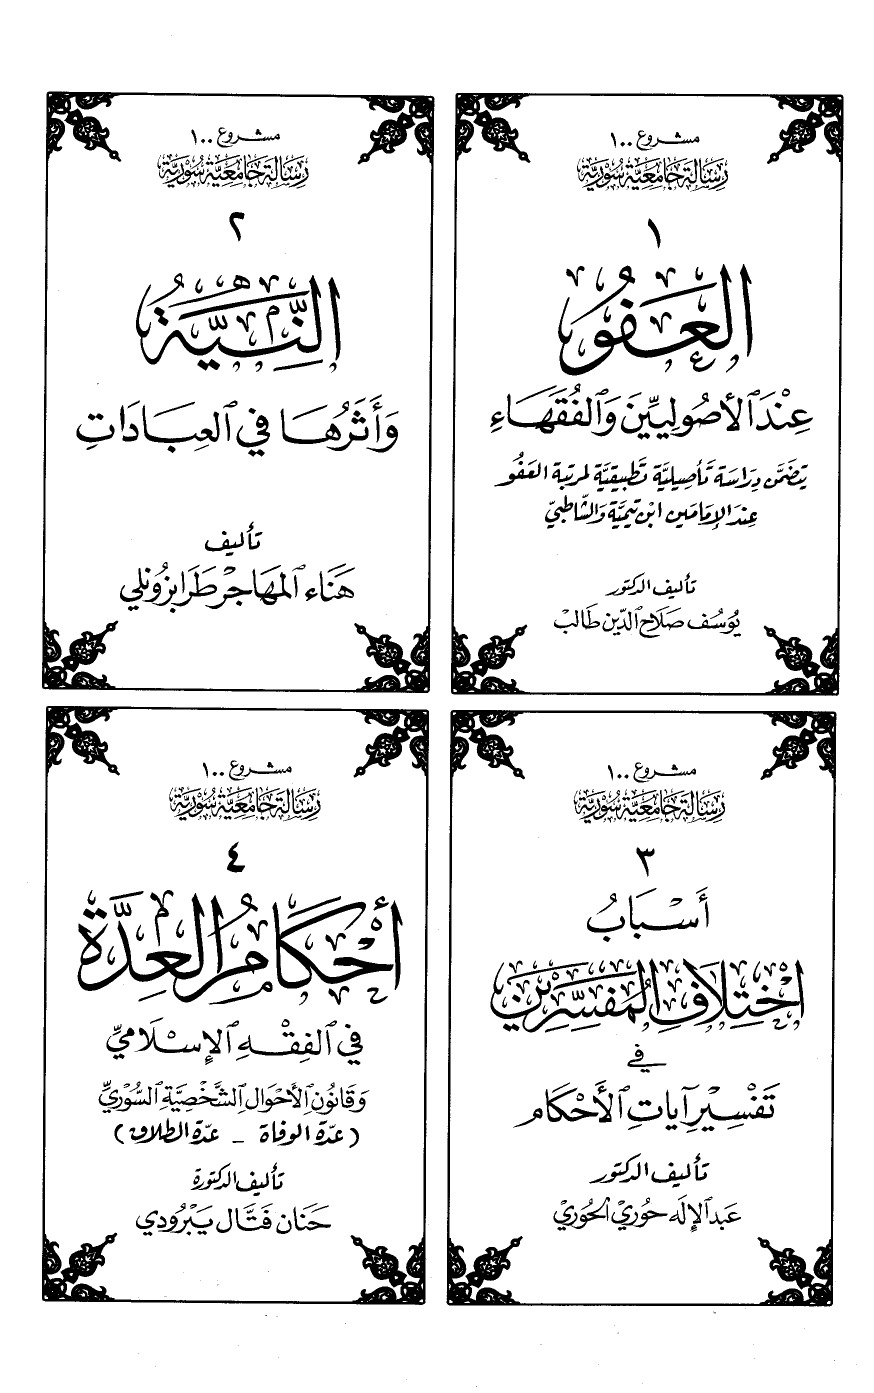 مشروع ١٠٠
رِسَالَة جَامِعيَّة سُورِيَّة
١
العَفْوُ
عِنْدَ الأصُوليِّينَ وَالفُقَهَاءِ
يتضَمَّن دِرَاسَة تَأصِيليَّة تَطبِيقيَّة لمرتبة العَفْو
عِندَ الإمَامَين ابن تيميَّة وَالشّاطبيّ
تأليف الدكتور
يُوسُف صَلَاح الدّين طَالب
مشروع ١٠٠
رِسَالَة جَامِعيَّة سُورِيَّة
٢
النِّيَّةُ
وَأَثَرُهَا في العِبَادَاتِ
تأليف
هَنَاء المهَاجر طَرَابزُونلي
مشروع ١٠٠
رِسَالَة جَامِعيَّة سُورِيَّة
٣
أَسْبَابُ
اخْتِلَافِ المُفَسِّرِين
في
تَفْسِيْرِ آيَاتِ الأَحْكَام
تأليف الدكتور
عَبد الإِلَه حُوري الحُوري
مشروع ١٠٠
رِسَالَة جَامِعيَّة سُورِيَّة
٤
أَحْكَامُ العِدَّة
في الفِقْهِ الإِسْلَاميِّ
وَقَانُونِ الأَحْوَالِ الشَّخْصِيَّةِ السُّوريِّ
(عدّة الوفاة - عدّة الطلاق)
تأليف الدكتورة
حَنَان فَتَّال يَبْرُودي